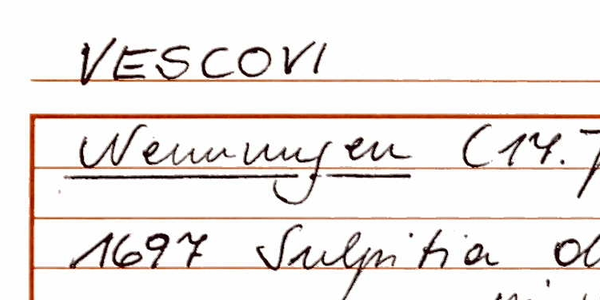 VESCOVI
Nennungen (17.
1697 Sulpitia